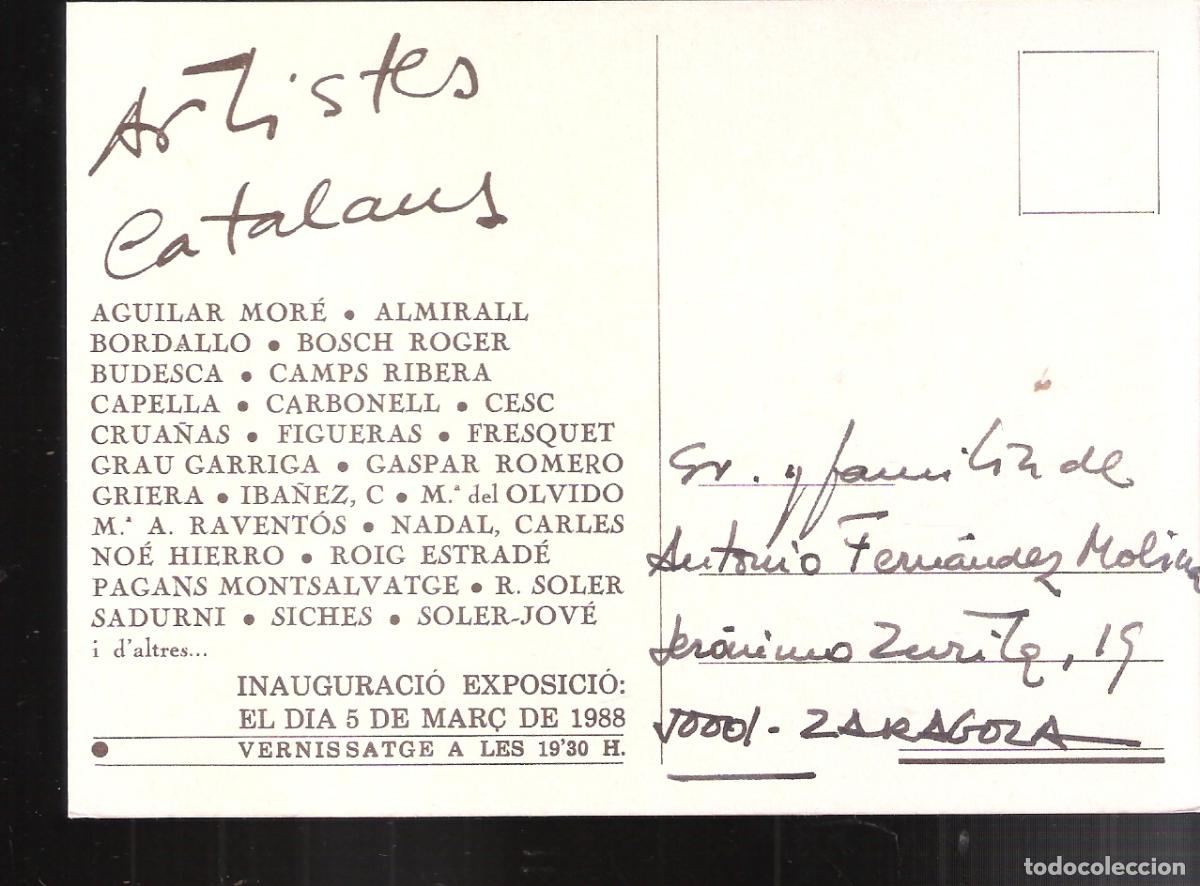 Artistes
Catalans
AGUILAR MORÉ • ALMIRALL
BORDALLO • BOSCH ROGER
BUDESCA • CAMPS RIBERA
CAPELLA • CARBONELL • CESC
CRUAÑAS • FIGUERAS • FRESQUET
GRAU GARRIGA • GASPAR ROMERO
GRIERA • IBAÑEZ, C • M.ª del OLVIDO
M.ª A. RAVENTÓS • NADAL, CARLES
NOÉ HIERRO • ROIG ESTRADÉ
PAGANS MONTSALVATGE • R. SOLER
SADURNI • SICHES • SOLER-JOVÉ
i d'altres...
INAUGURACIÓ EXPOSICIÓ:
EL DIA 5 DE MARÇ DE 1988
• VERNISSATGE A LES 19'30 H.
Sr. y familia de
Antonio Fernández Molina
Jerónimo Zurita, 19
50001 - ZARAGOZA
todocoleccion